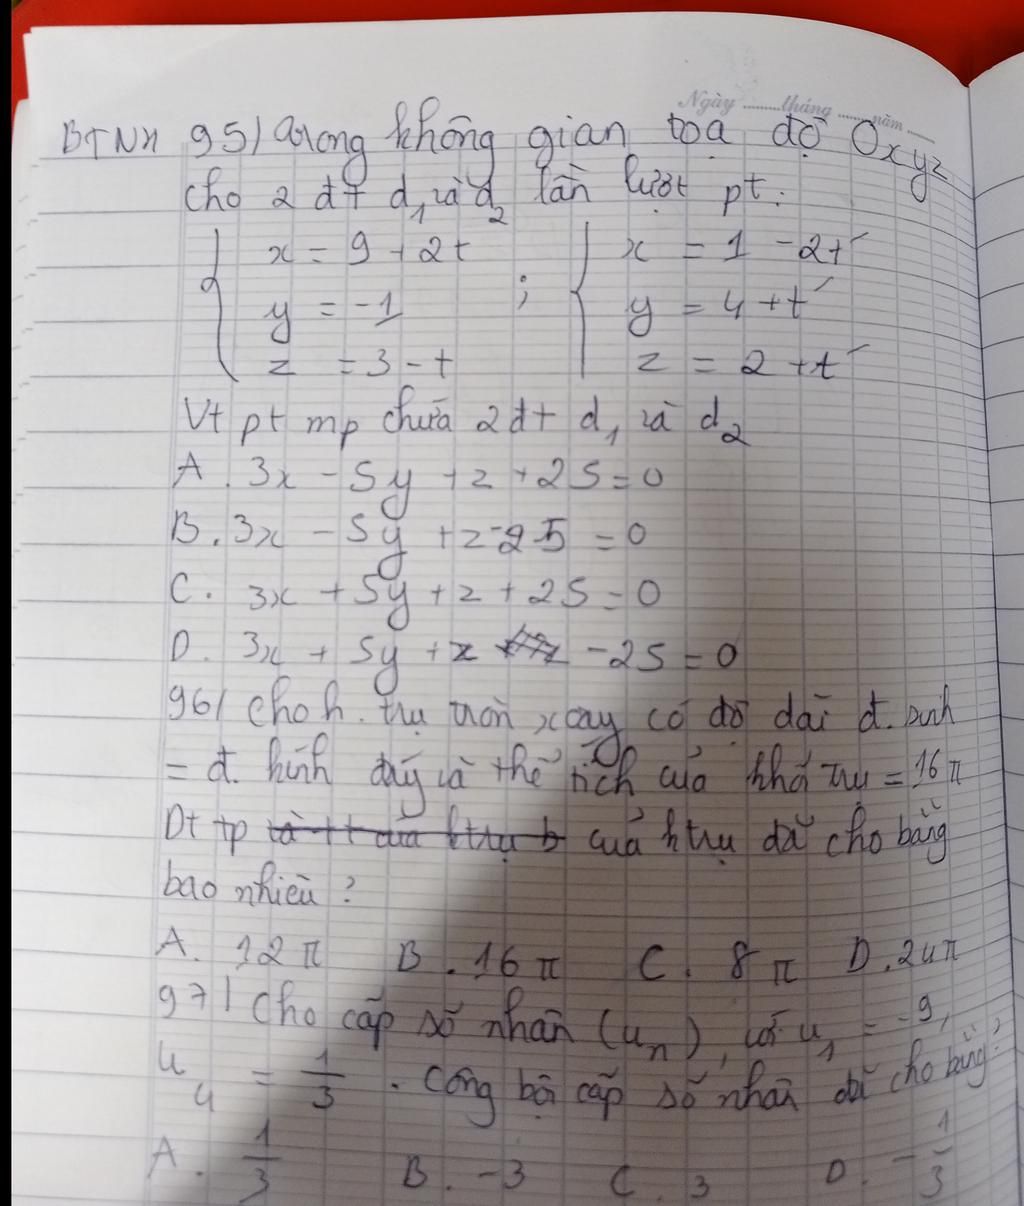 Ngày ........tháng ......năm ......
BTNH 95/ Trong không gian toạ độ Oxyz
cho 2 đt d₁ và d₂ lần lượt pt:
{ x = 9 + 2t ; { x = 1 - 2t′
y = -1 y = 4 + t′
z = 3 - t z = 2 + t′
Vt pt mp chứa 2đt d₁ và d₂
A. 3x - 5y + z + 25 = 0
B. 3x - 5y + z - 25 = 0
C. 3x + 5y + z + 25 = 0
D. 3x + 5y + z - 25 = 0
96/ Cho h. trụ tròn xoay có độ dài đ. sinh
= đ. kính đáy và thể tích của khối trụ = 16π
Dt tp của htrụ đã cho bằng
bao nhiêu ?
A. 12π B. 16π C. 8π D. 24π
97/ Cho cấp số nhân (uₙ), với u₁ = -9,
u₄ = 1/3 . Công bội cấp số nhân đã cho bằng?
A. 1/3 B. -3 C. 3 D. -1/3